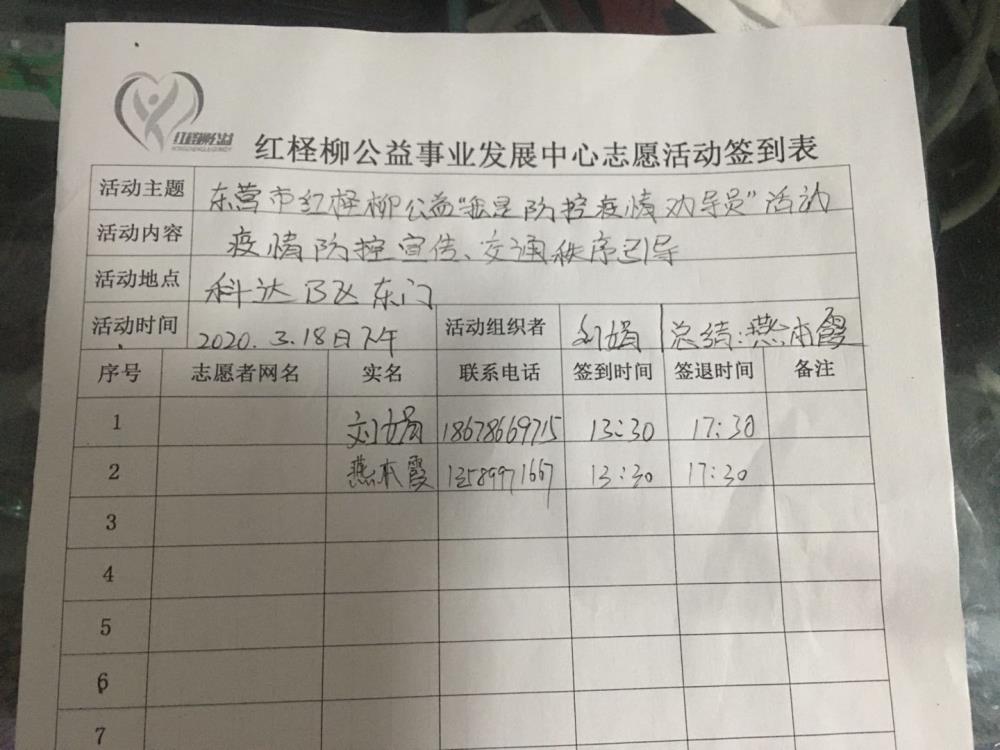 红柽柳公益
红柽柳公益事业发展中心志愿活动签到表
活动主题 东营市红柽柳公益“我是防控疫情劝导员”活动
活动内容 疫情防控宣传、交通秩序引导
活动地点 科达B区东门
活动时间 2020.3.18日下午 活动组织者 刘娟 总结:燕本霞
序号 志愿者网名 实名 联系电话 签到时间 签退时间 备注
1 刘娟 18678669715 13:30 17:30
2 燕本霞 13589971667 13:30 17:30
3
4
5
6
7